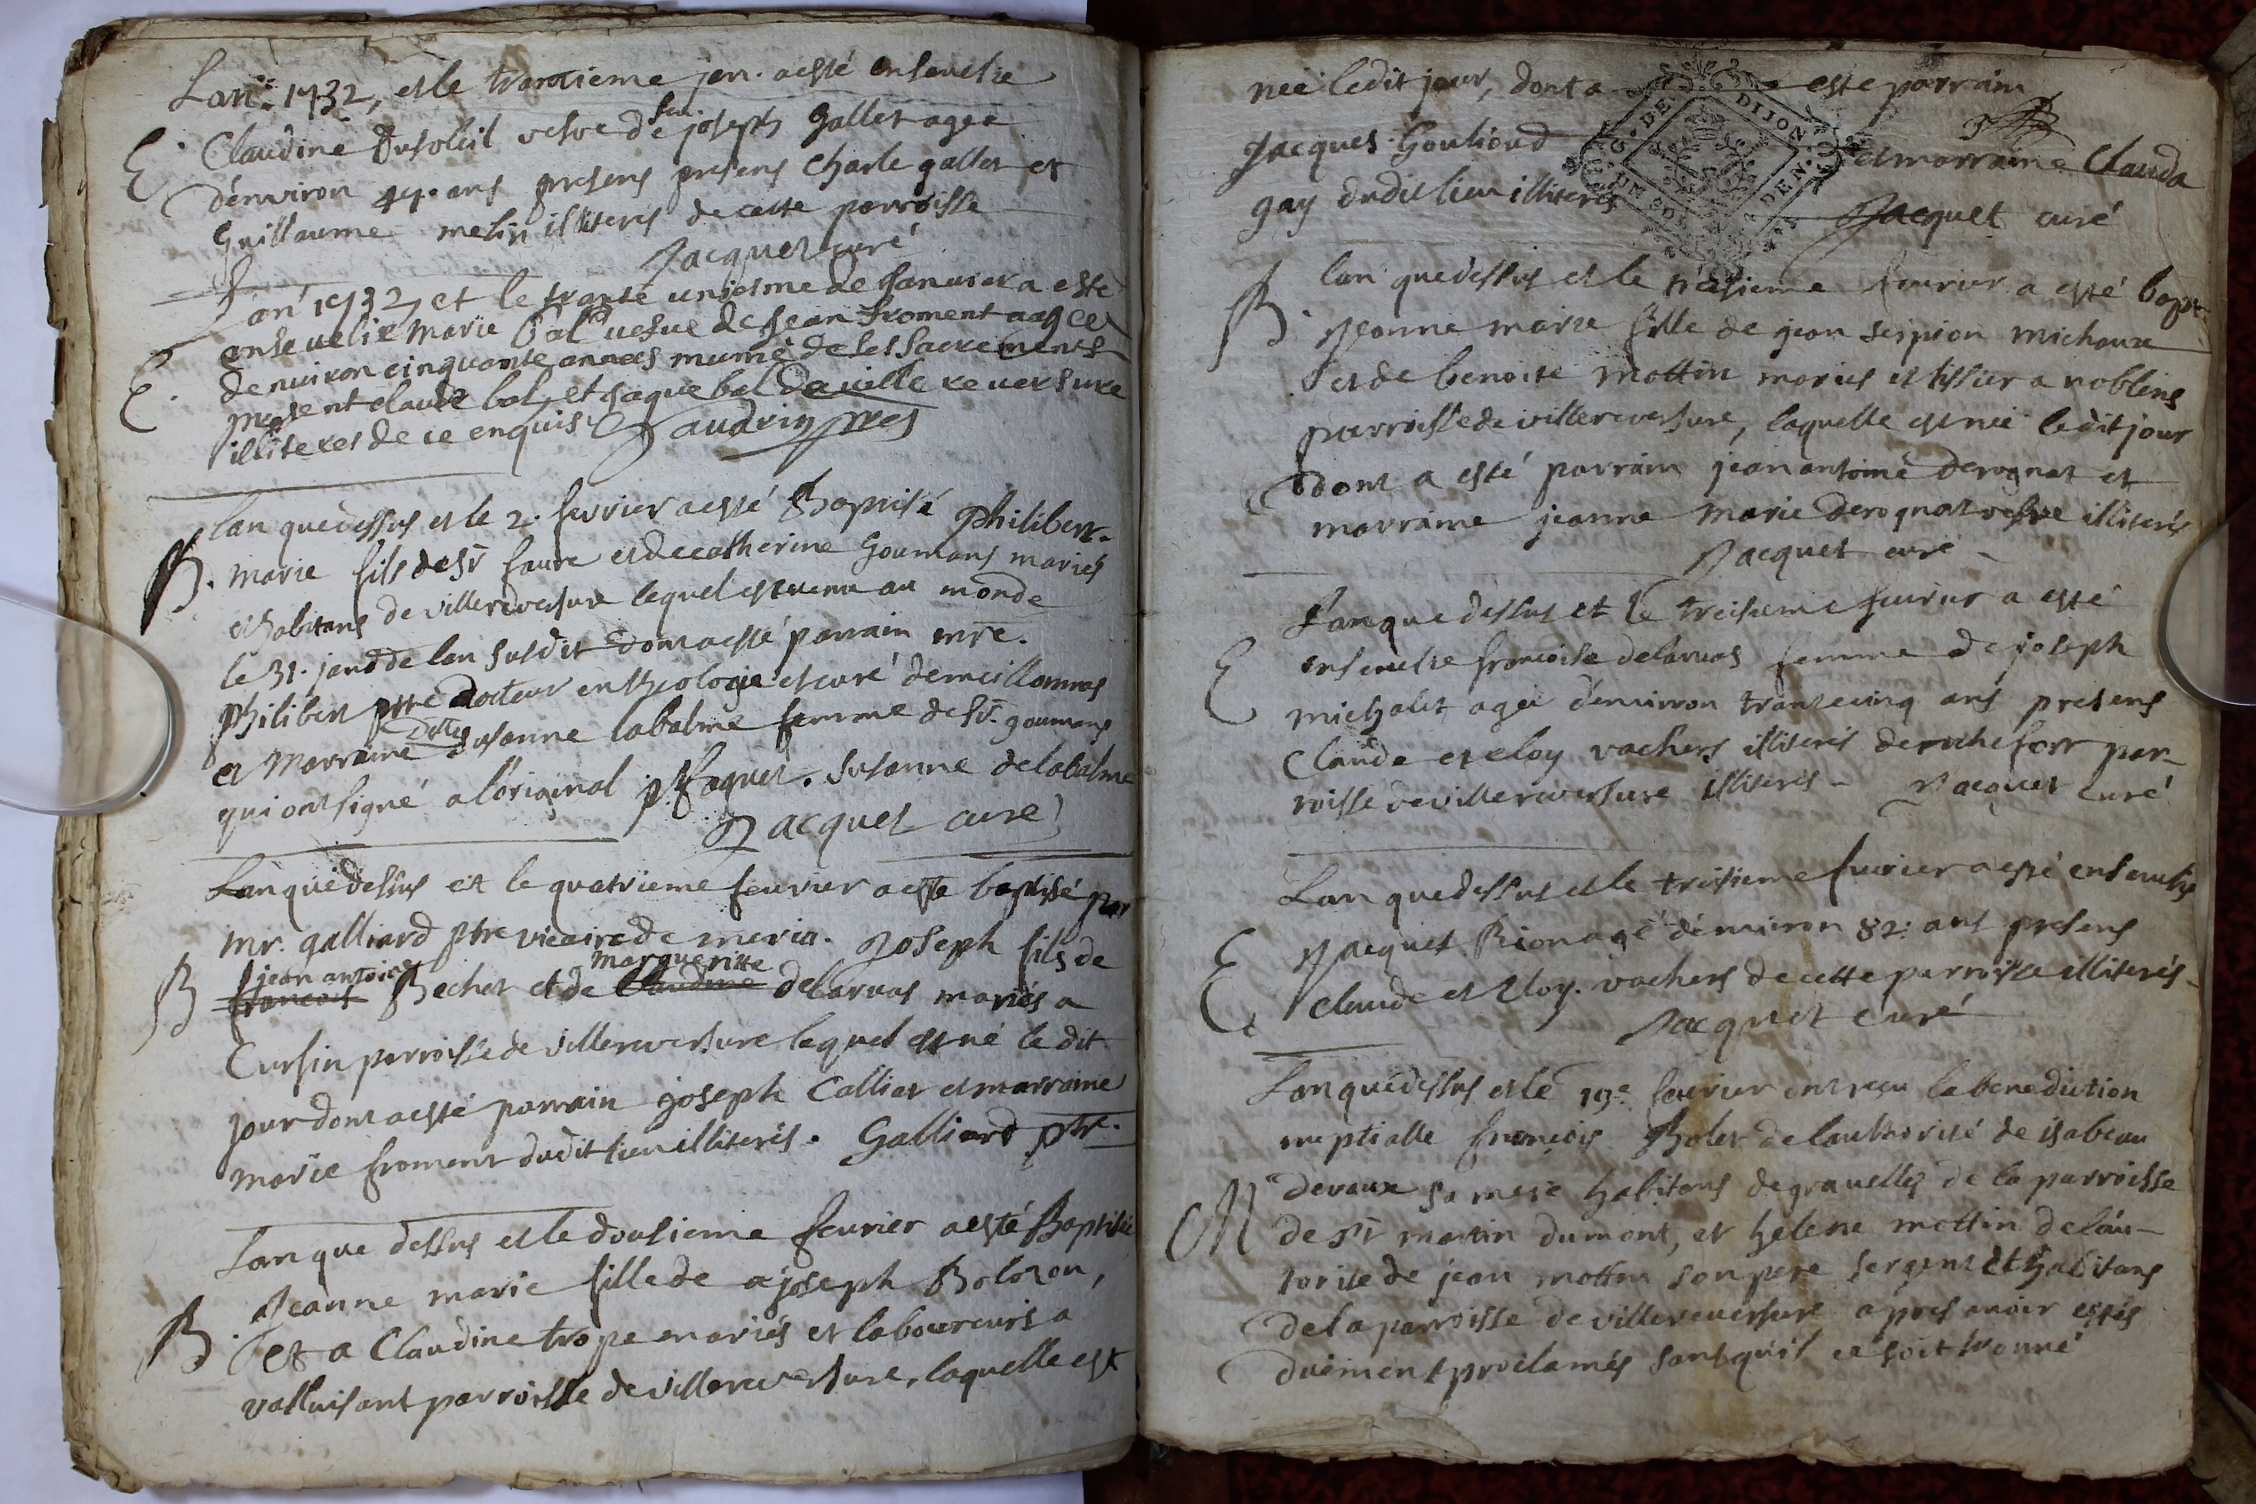 Lan 1732, et le trantieme jan. a esté ensevelie
E. Claudine Dusoleil vefve de feu joseph Gallet agee
d'environ ans presens presens Charle gallet et
Guillaume melin illiterés de cette parroisse
Jacquet curé
Lan 1732, et le trante uniesme de Janvier a este
ensevelie Marie Bal vefve de Jean Froment aagee
E. denviron cinquante annees munie de ses Sacrements
present claude bal et jaque bal de villereversure
illiteres de ce enquis
lan que dessus et le 2. fevrier a esté Baptisé Philibert-
B. Marie fils de Sr faure et de catherine Goumans mariés
et habitans de villereversure lequel est venu au monde
le 31. janv de lan susdit dont a esté parrain mre.
philibert ptre docteur en theologie et curé de meillonnas
et Marraine dlle Susanne labalme femme de Sr. goumans
qui ont signé a l'original p. Jaquet. Susanne delabalme
Jacquet curé
Lan que dessus et le quatrieme fevrier a este baptisé par
mr. galliard ptre vicaire de meria. Joseph fils de
B jean antoine francois Bechet et de margueritte claudine delarvas mariés a
Cursin parroisse de villereversure lequel est né le dit
jour dont a esté parrain joseph Calliat et marraine
marie froment dudit lieu illiterés. Galliard ptr.
Lan que dessus et le dousieme fevrier a esté Baptisée
B. Jeanne marie fille de a joseph Bolozon,
et a Claudine trope mariés et laboureurs a
valluisant parroisse de villereversure, laquelle est
née ledit jour, dont a este parrain
Jacques Goulioud et marraine Clauda
gay dudit lieu illiterés
DE DIJON
Jacquet curé
lan que dessus et le fevrier a esté bapt-
B. Jeanne marie fille de jean scipion michaux
et de benoite mottin mariés et tissier a noblens
parroisse de villereversure, laquelle est née le dit jour
dont a esté parrain jean antoine derognat et
marraine jeanne marie derognat vefve illiterés
Jacquet curé
Lan que dessus et le treisieme fevrier a esté
E ensevelie francoise delarvas femme de joseph
michalet agée d'environ trante cinq ans presens
Claude et eloy vachers illiterés de rochefort par-
roisse de villereversure illiterés - Jacquet curé
Lan que dessus et le treisieme fevrier a esté ensevelie
E Jacquet Bion agé d'environ 82: ans presens
Claude et Eloy. vachers de cette parroisse illiterés-
Jacquet curé
Lan que dessus et le 19e fevrier ont reçu la benediction
nuptialle françois Tholet de lauthorité de isabeau
M devaux sa mere habitans de gravelles de la parroisse
de St martin dumont, et helene mottin de l'au-
torité de jean mottin son pere sergent et habitans
de la parroisse de villereversure apres avoir estés
duëment proclamés sans qu'il ce soit trouvé